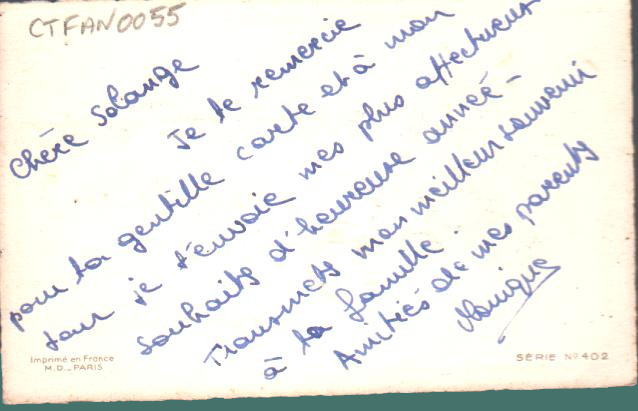 CTFAN0055
Chère Solange
Je te remercie
pour ta gentille carte et à mon
tour je t'envoie mes plus affectueux
souhaits d'heureuse année -
Transmets mon meilleur souvenir
à ta famille.
Amitiés de mes parents
Monique
Imprimé en France
M.D. _ PARIS
SÉRIE Nº 402